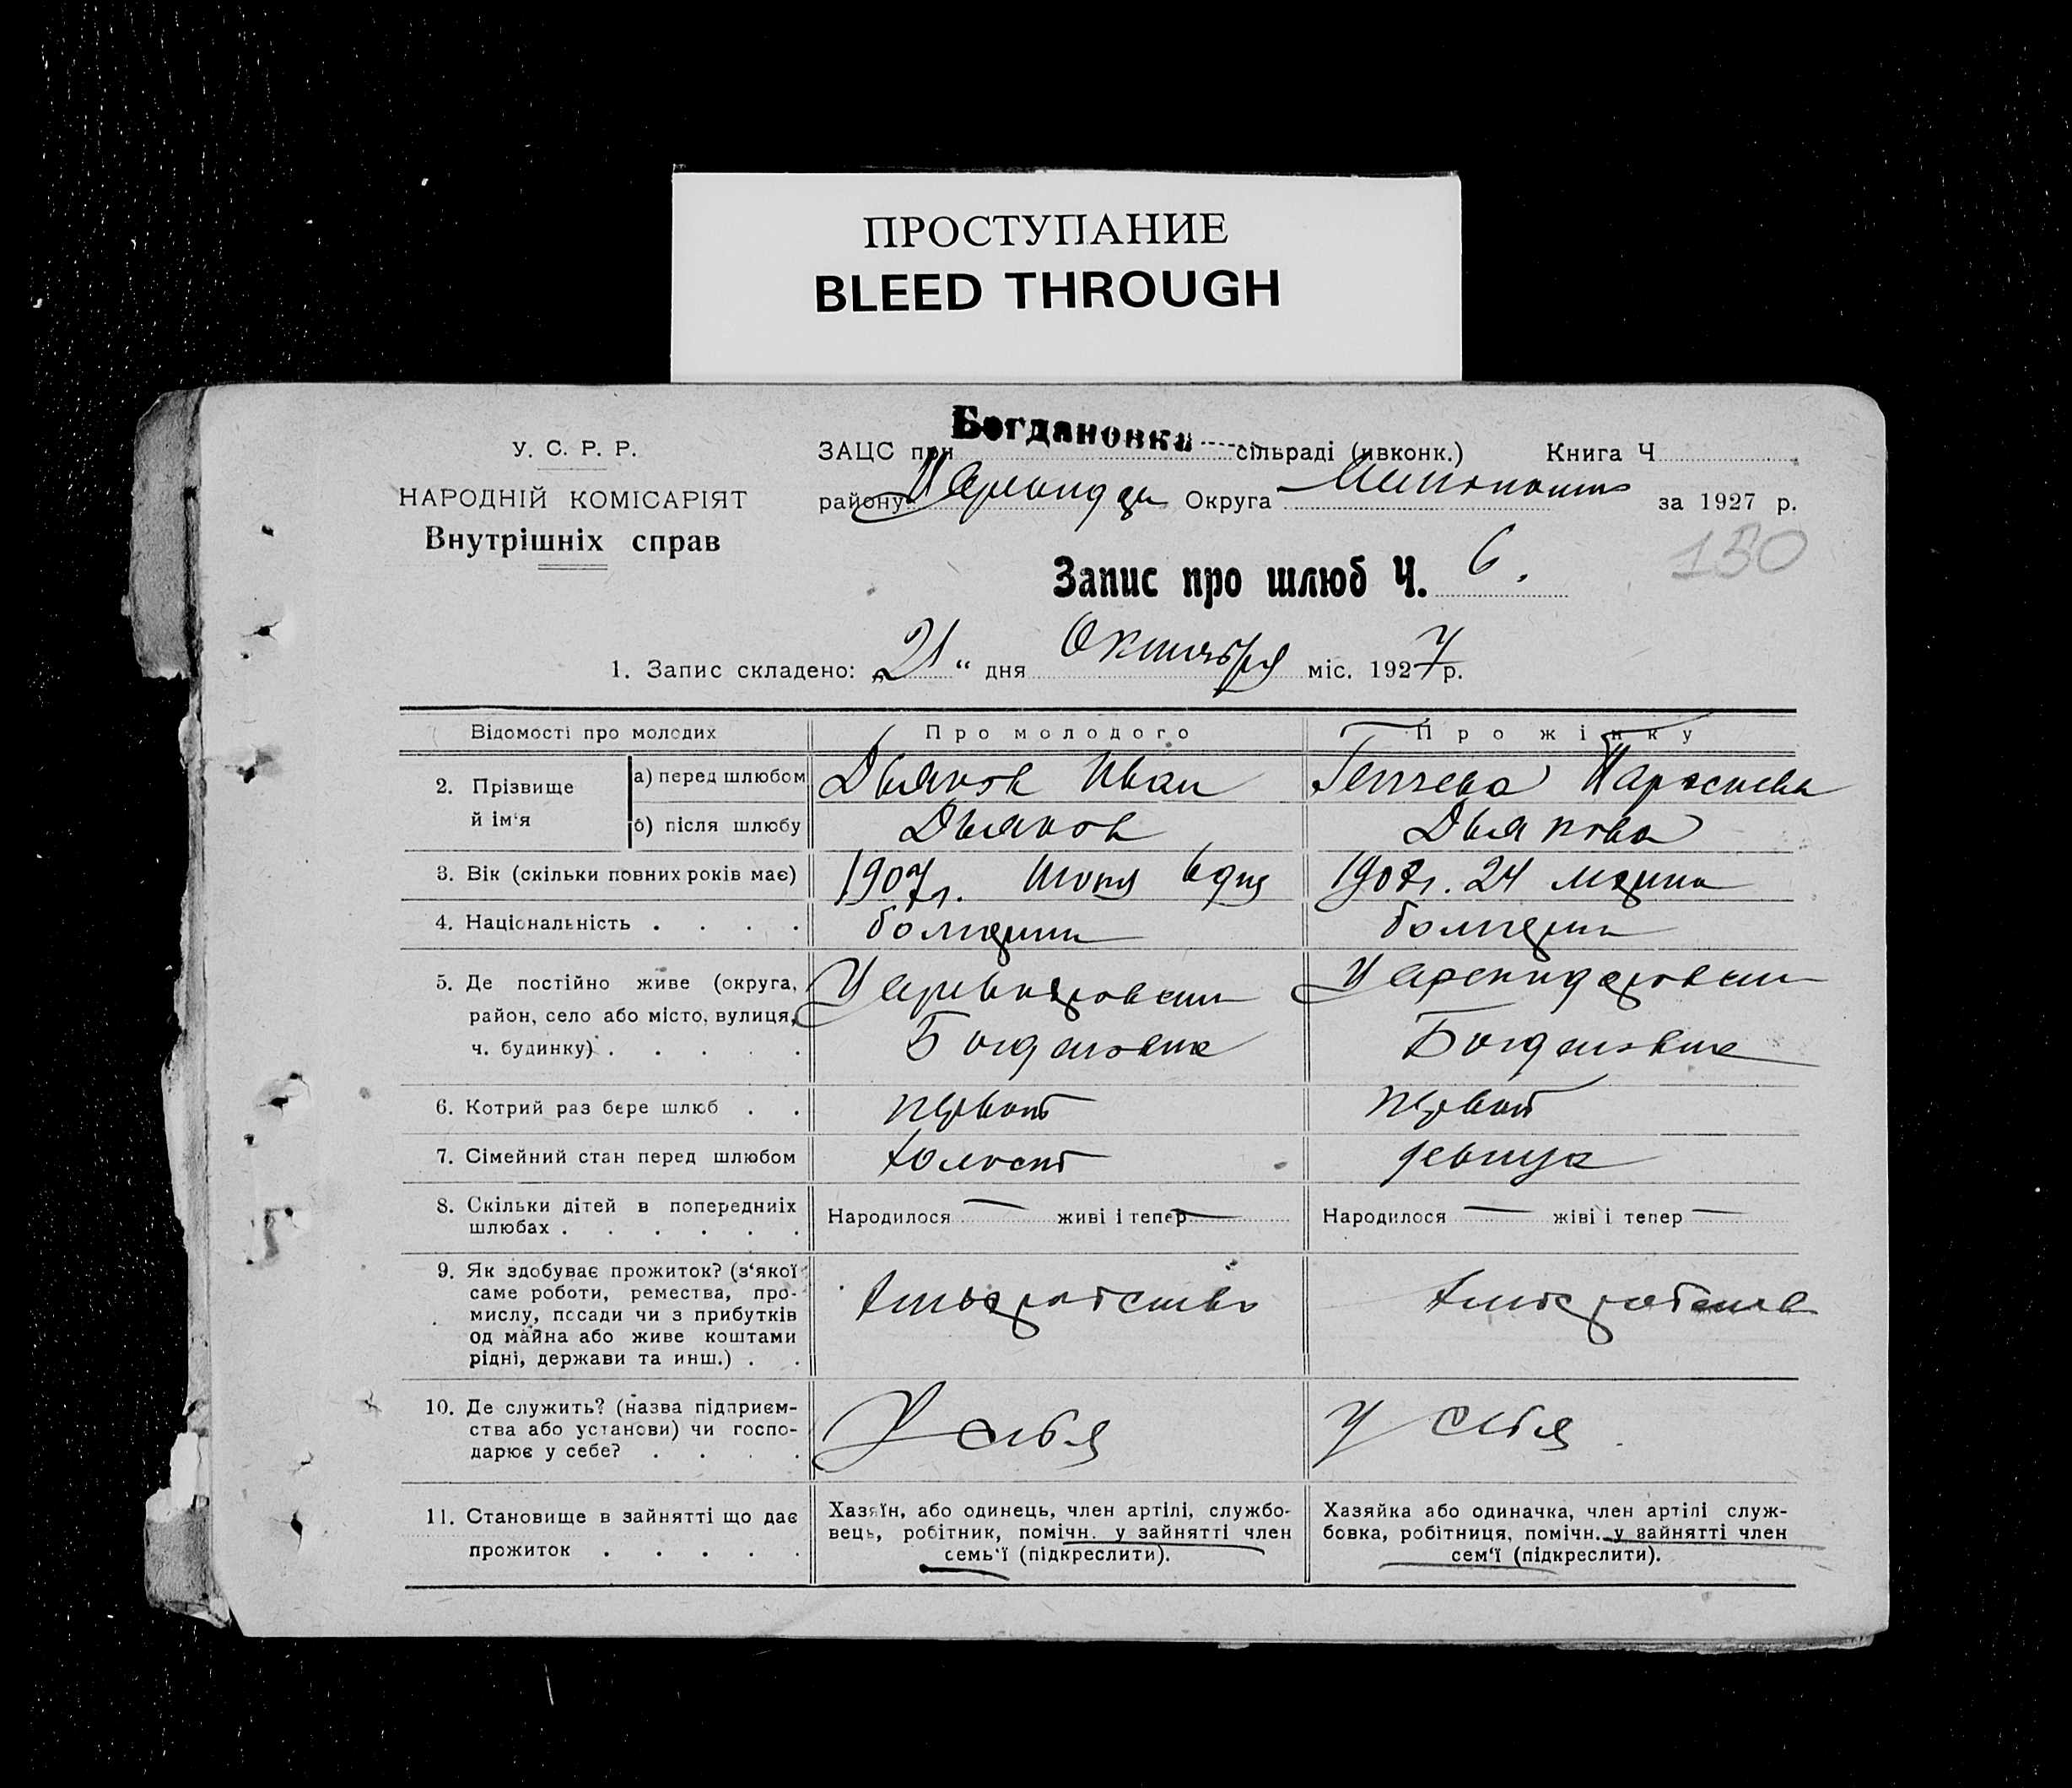 ПРОСТУПАНИЕ
BLEED THROUGH
У. С. Р. Р.
НАРОДНІЙ КОМІСАРІЯТ
Внутрішніх справ
ЗАЦС при Богдановка сільраді (ивконк.) Книга Ч
району Округа за 1927 р.
150
Запис про шлюб Ч. 6.
1. Запис складено: „21“ дня Октября міс. 1927 р.
Відомості про молодих
Про молодого
Про жінку
2. Прізвище й ім‘я
а) перед шлюбом
Дьяков Иван
Парасковья
б) після шлюбу
Дьяков
Дьякова
3. Вік (скільки повних років має)
1907 г. Июня 6 дня
24 марта
4. Національність
болгарин
болгарка
5. Де постійно живе (округа,
район, село або місто, вулиця,
ч. будинку)
Богдановка
Богдановка
6. Котрий раз бере шлюб
первый
первый
7. Сімейний стан перед шлюбом
холост
девица
8. Скільки дітей в попередниіх
шлюбах
Народилося — живі і тепер —
Народилося — жіві і тепер —
9. Як здобуває прожиток? (з‘якої
саме роботи, ремества, про-
мислу, посади чи з прибутків
од майна або живе коштами
рідні, держави та инш.)
Хлебопашество
10. Де служить? (назва підприєм-
ства або установи) чи госпо-
дарює у себе?
У себя
У себя
11. Становище в зайнятті що дає
прожиток
Хазяїн, або одинець, член артілі, службо-
вець, робітник, помічн. у зайнятті член
семь‘ї (підкреслити).
Хазяйка або одиначка, член артілі служ-
бовка, робітниця, помічн. у зайнятті член
сем‘ї (підкреслити).